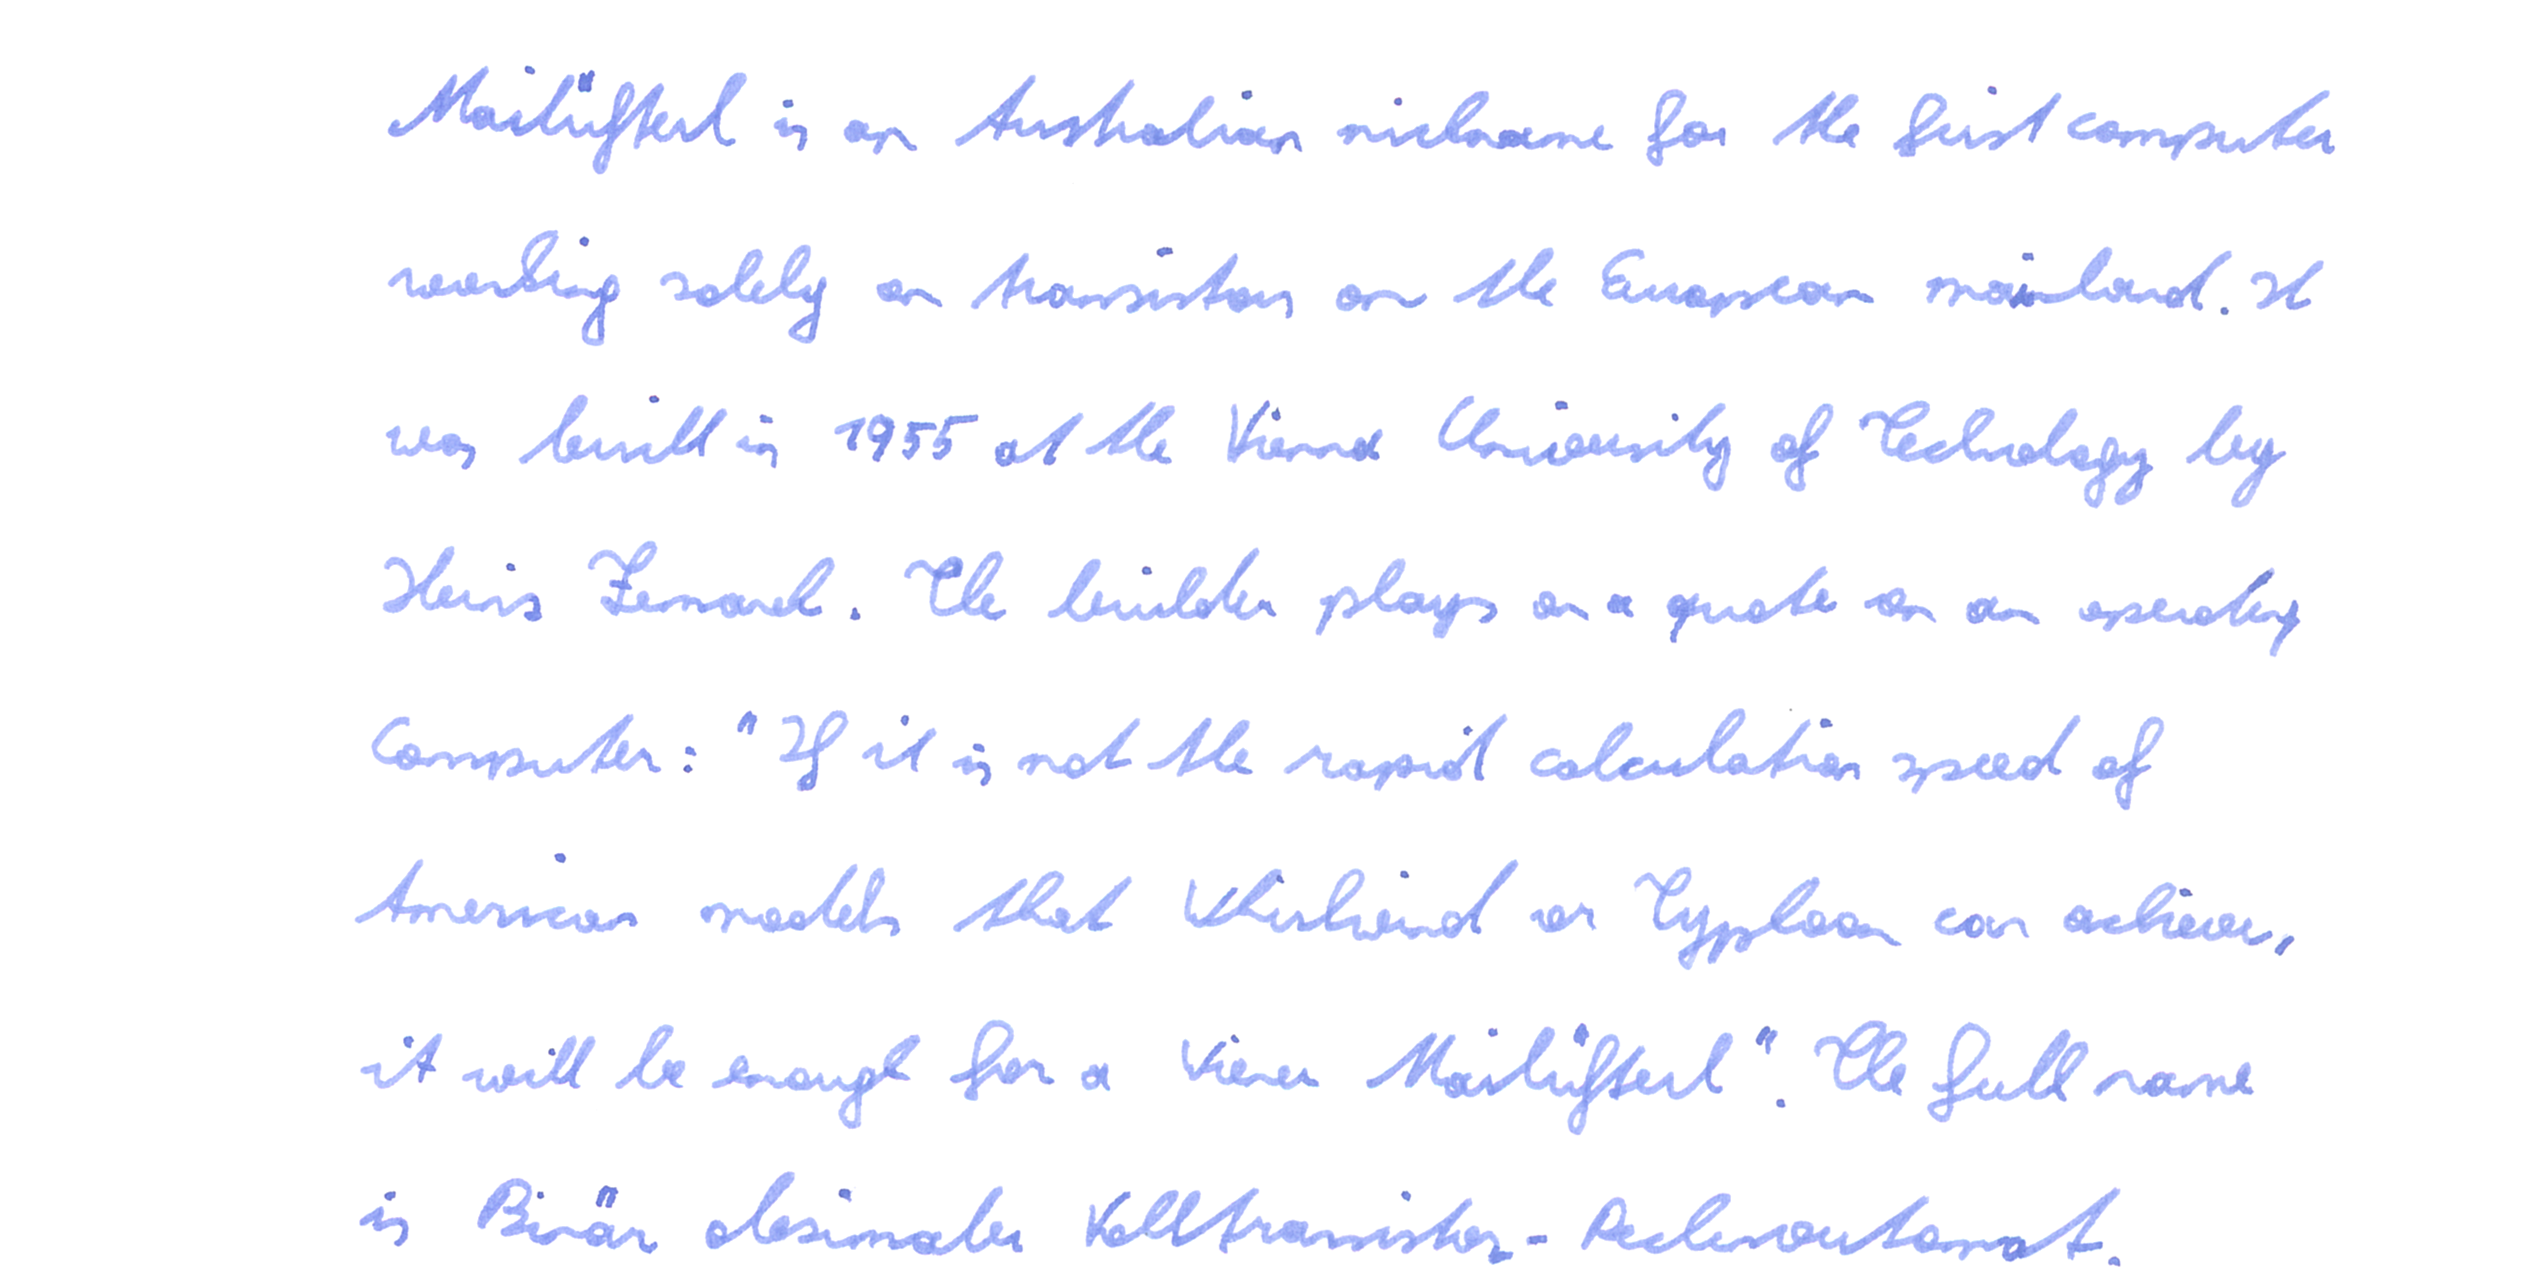 Mailüfterl is an Australian nickname for the first computer
working solely on transistors on the European mainland. It
was built in 1955 at the Vienna University of Technology by
Heinz Zemanek. The builder plays on a quote on an operating
Computer: "If it is not the rapid calculation speed of
American models that Whirlwind or Typhoon can achieve,
it will be enough for a Wiener Mailüfterl". The full name
is Binär dezimaler Volltransistor-Rechenautomat.